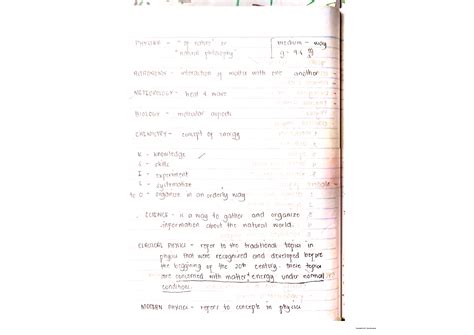 PHYSIKA - " of nature " or medium - way
"natural philosophy"
ASTRONOMY - interaction of matter with one another
METEOROLOGY - heat & wave
BIOLOGY - molecular aspects
CHEMISTRY - concept of energy
K - knowledge
S - skills
I - experiment
S - systematize
to O - organize in an orderly way
SCIENCE - is a way to gather and organize
information about the natural world.
CLASSICAL PHYSICS - refer to the traditional topics in
physics that were recognized and developed before
the beginning of the 20th century. these topics
are concerned with matter & energy under normal
condition.
MODERN PHYSICS - refers to concepts in physics